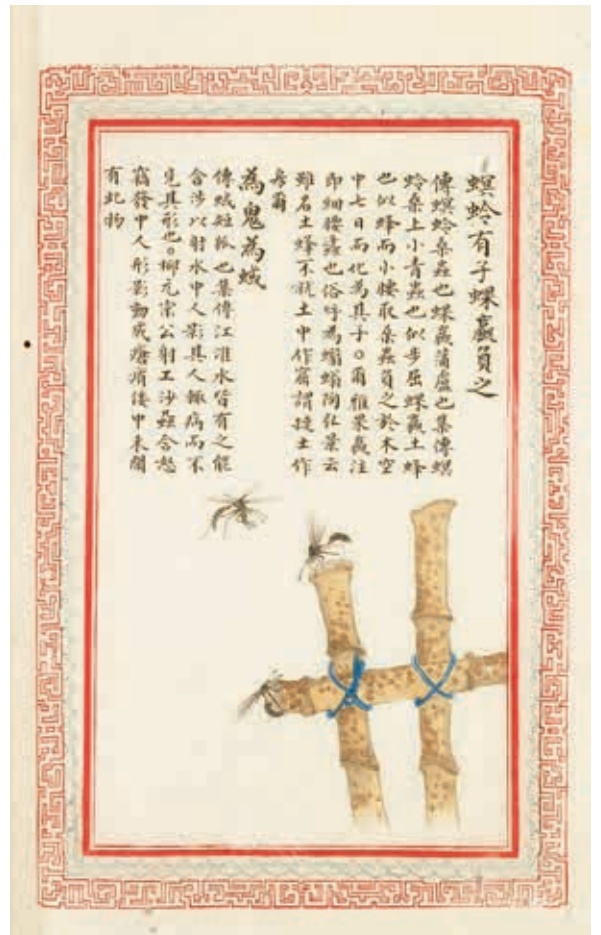 螟蛉有子蜾蠃負之
傳螟蛉桑蟲也蜾蠃蒲盧也集傳螟
蛉桑上小青蟲也似步屈蜾蠃土蜂
也似蜂而小腰取桑蟲負之於木空
中七日而化為其子○爾雅果蠃注
即細腰蠭也俗呼為蠮螉陶弘景云
雖名土蜂不就土中作窟謂摙土作
房爾
為鬼為蜮
傳蜮短狐也集傳江淮水皆有之能
含沙以射水中人影其人輒病而不
見其形也○柳元宗公射工沙蝨含怒
竊發中人形影動成瘡痏後中未聞
有此物